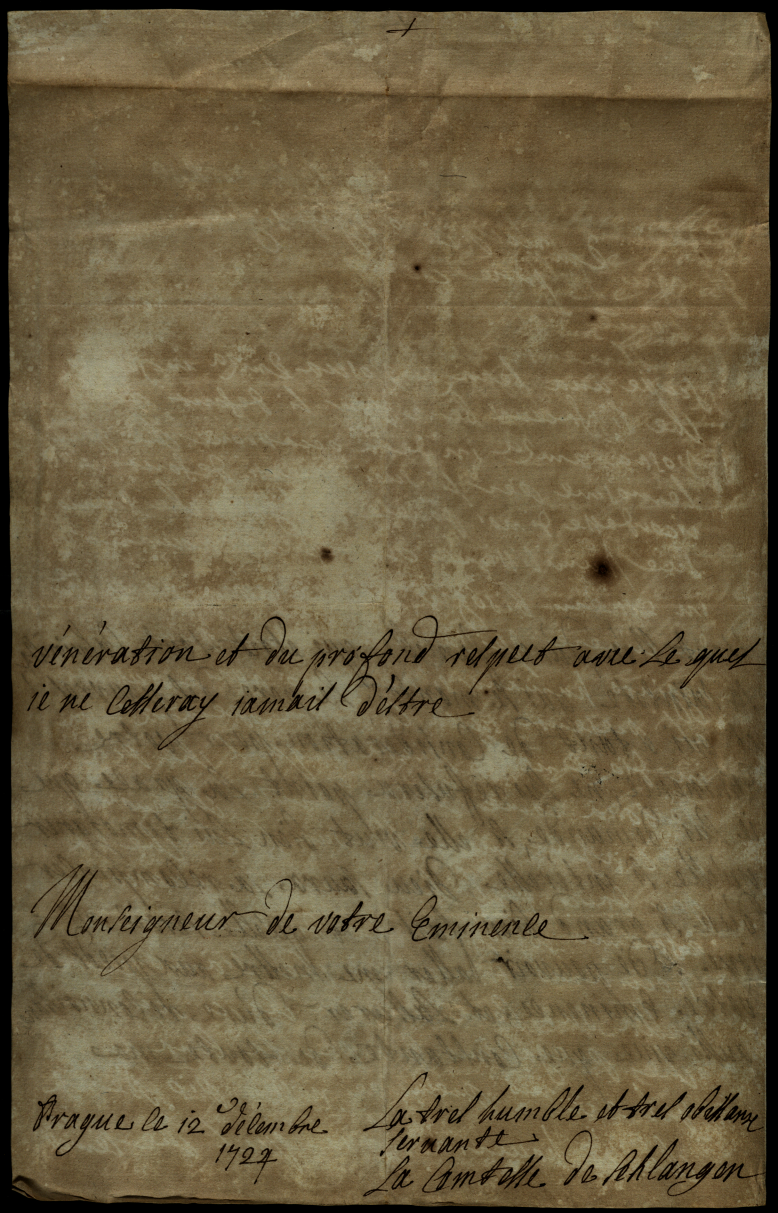 vénération et du profond respect avec le quel
ie ne cesseray iamais d'éstre
Monseigneur de votre Eminence
Prague le 12 décembre
1724
La tres humble et tres obeissante
servante
La Comtesse de Schlangen